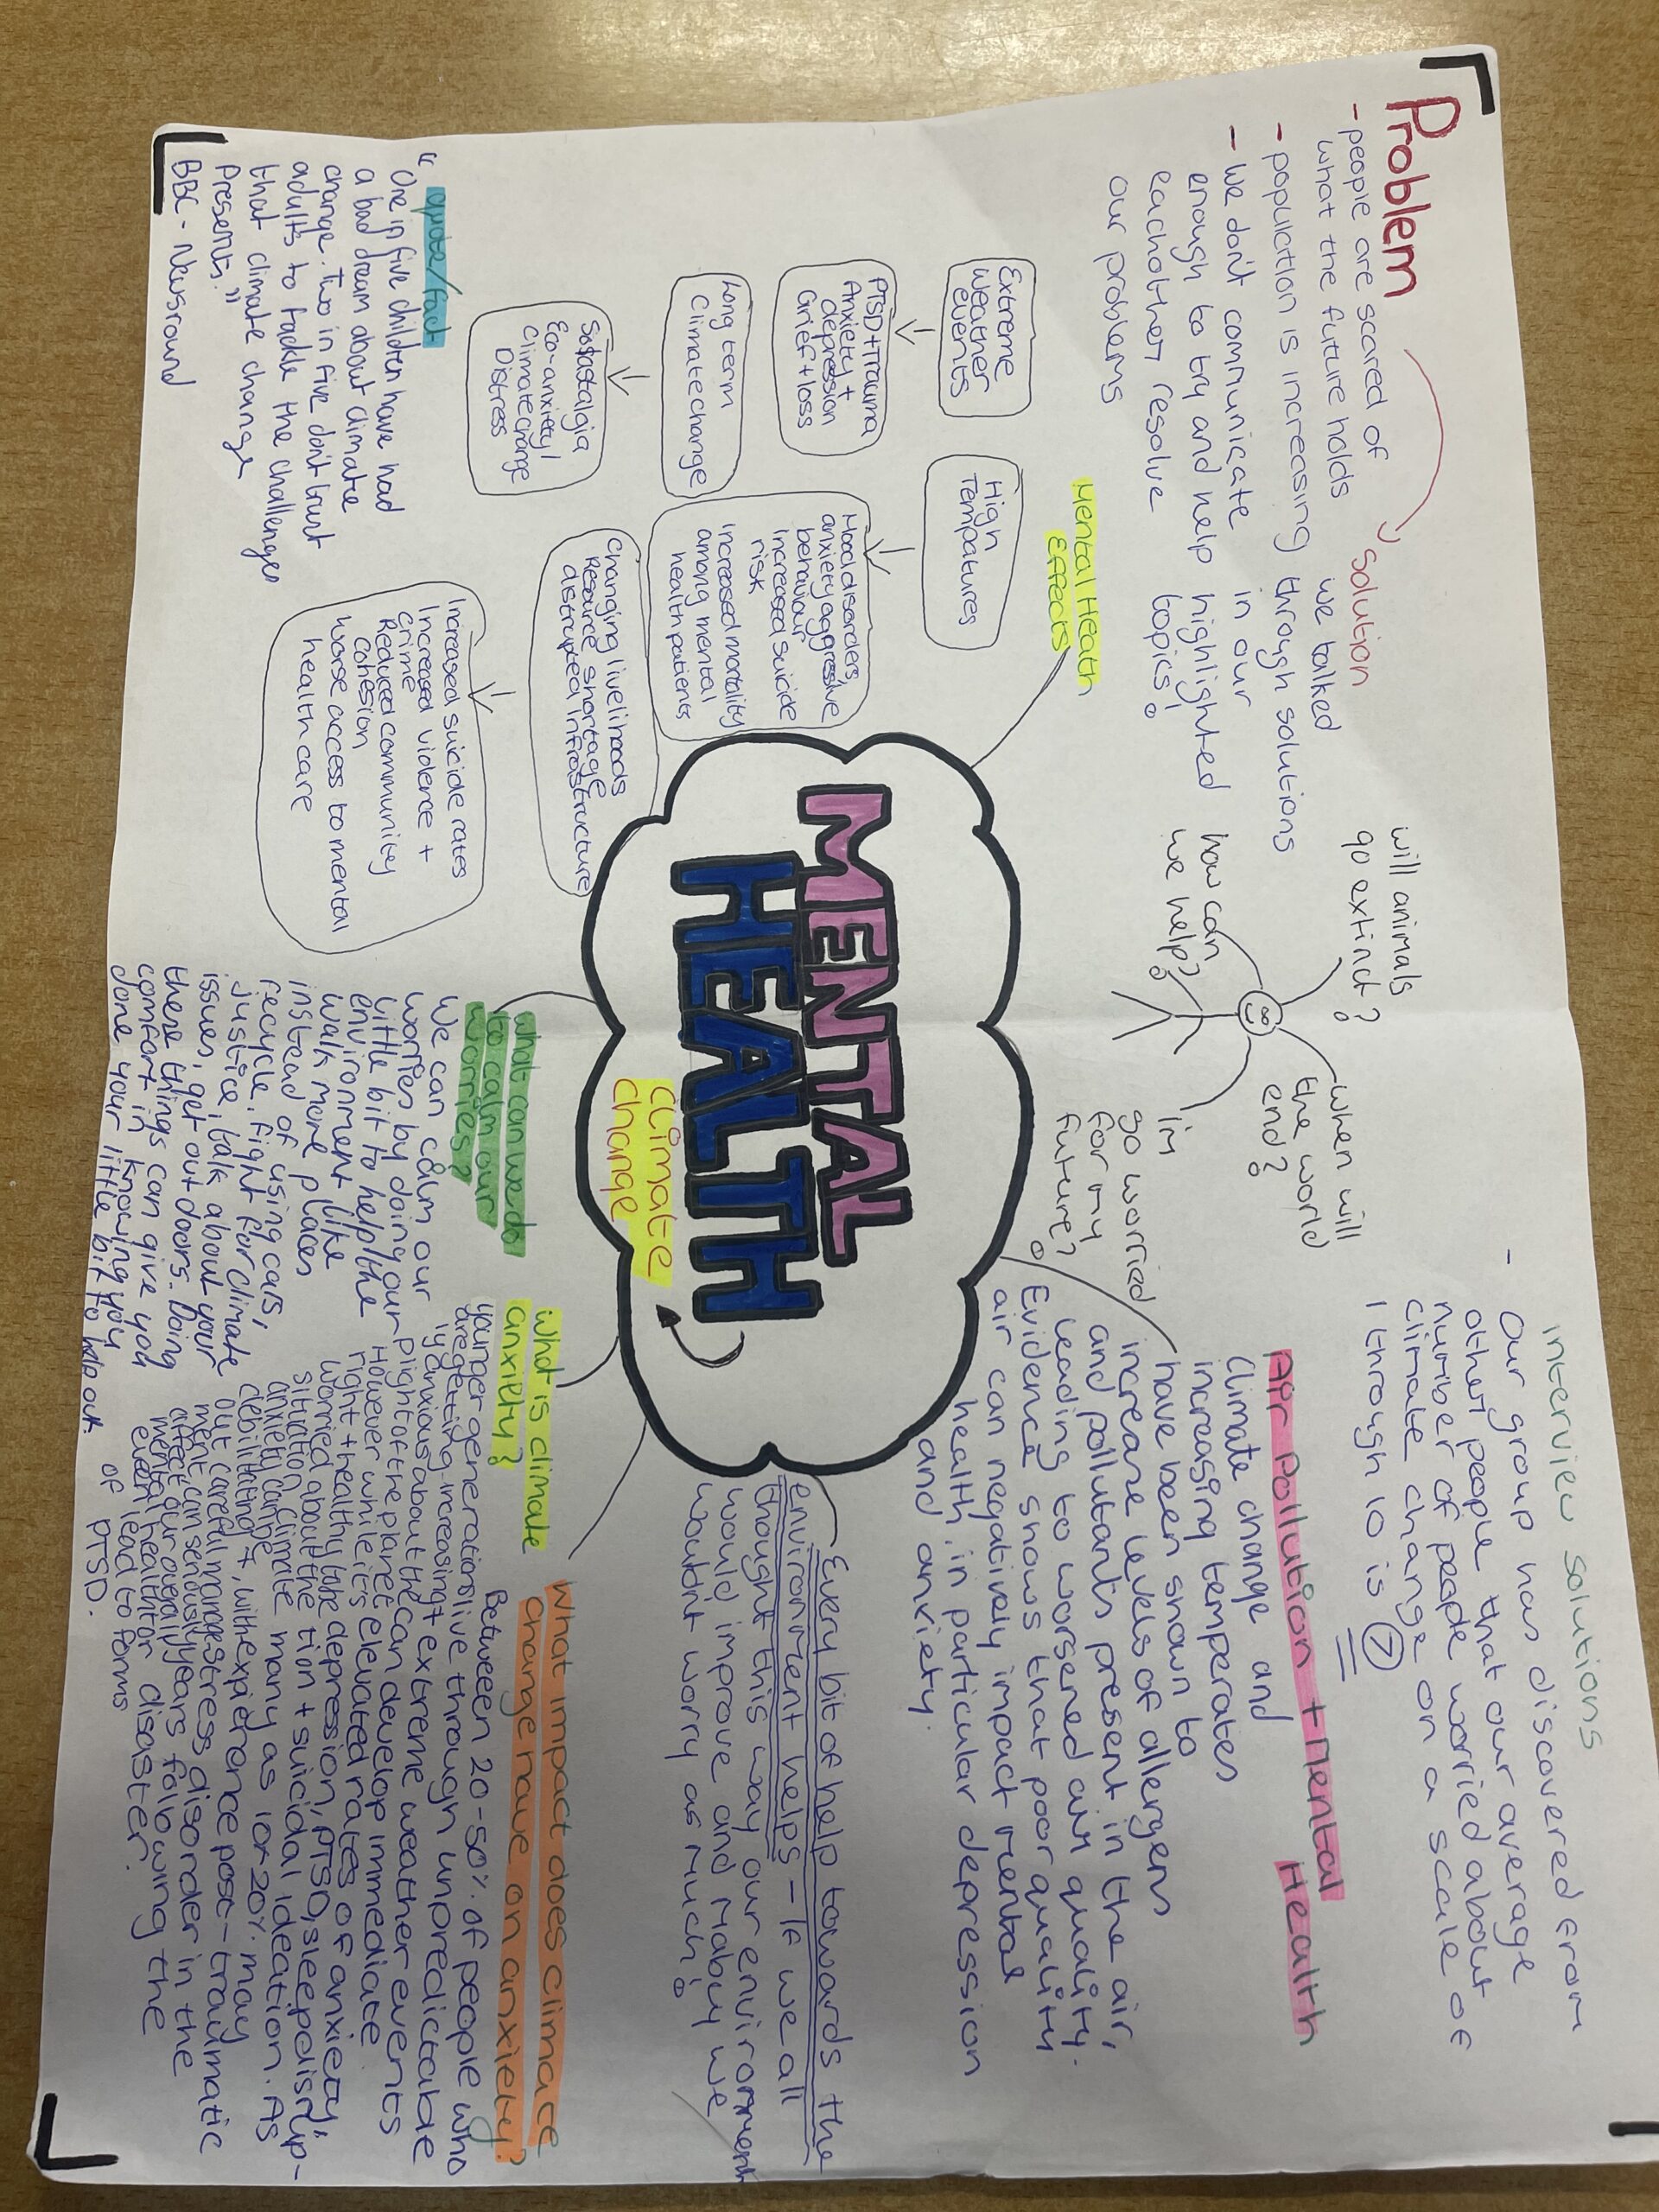 Problem
- people are scared of
what the future holds
- population is increasing
- we don't communicate
enough to try and help
eachother resolve
our problems
Solution
we talked
through solutions
in our
highlighted
topics!
will animals
go extinct?
how can
we help?
when will
the world
end?
im
so worried
for my
future?
interview solutions
- Our group has discovered from
other people that our average
number of people worried about
climate change on a scale of
1 through 10 is 7
Mental Health
Effects
Extreme
weather
events
PTSD + Trauma
Anxiety +
depression
Grief + loss
Long term
Climate change
Solastalgia
Eco-anxiety/
Climate change
Distress
High
Tempatures
Mood disorders,
anxiety aggressive
behaviour
Increased suicide
risk
Increased mortality
among mental
health patients
Changing livelihoods
Resource shortage
distrupted infrostructure
Increased suicide rates
Increased violence +
crime
Reduced community
cohesion
Worse access to mental
health care
quote/fact
"One in five children have had
a bad dream about climate
change. Two in five don't trust
adults to tackle the challenges
that climate change
presents."
BBC - Newsround
MENTAL
HEALTH
climate
change
Air Pollution + Mental Health
Climate change and
increasing temperates
have been shown to
increase levels of allergens
and pollutants present in the air,
leading to worsened air quality.
Evidence shows that poor quality
air can negatively impact mental
health, in particular depression
and anxiety.
Every bit of help towards the
environment helps - If we all
thought this way our enviroment
would improve and Maby we
wouldnt worry as much!
what can we do
to calm our
worries?
We can calm our
worries by doing our
little bit to help the
environment like
walk more places
instead of using cars,
recycle, fight for climate
justice, talk about your
issues, get outdoors. Doing
these things can give you
comfort in knowing you
done your little bit to help out.
What is climate
anxiety?
younger generations
are getting increasing
ly anxious about the
plight of the planet
However while it's
right + healthy to be
worried about the
situation, climate
anxiety can be
debilitating +, with
out careful manage
ment can seriously
affect our overall
mental health or
even lead to forms
of PTSD.
What impact does climate
change have on anxiety?
Between 20-50% of people who
live through unpredictable
+ extreme weather events
can develop immediate
elevated rates of anxiety,
depression, PTSD, sleep disrup-
tion + suicidal ideation. As
many as 10-20% may
expierence post-traumatic
stress disorder in the
years following the
disaster.